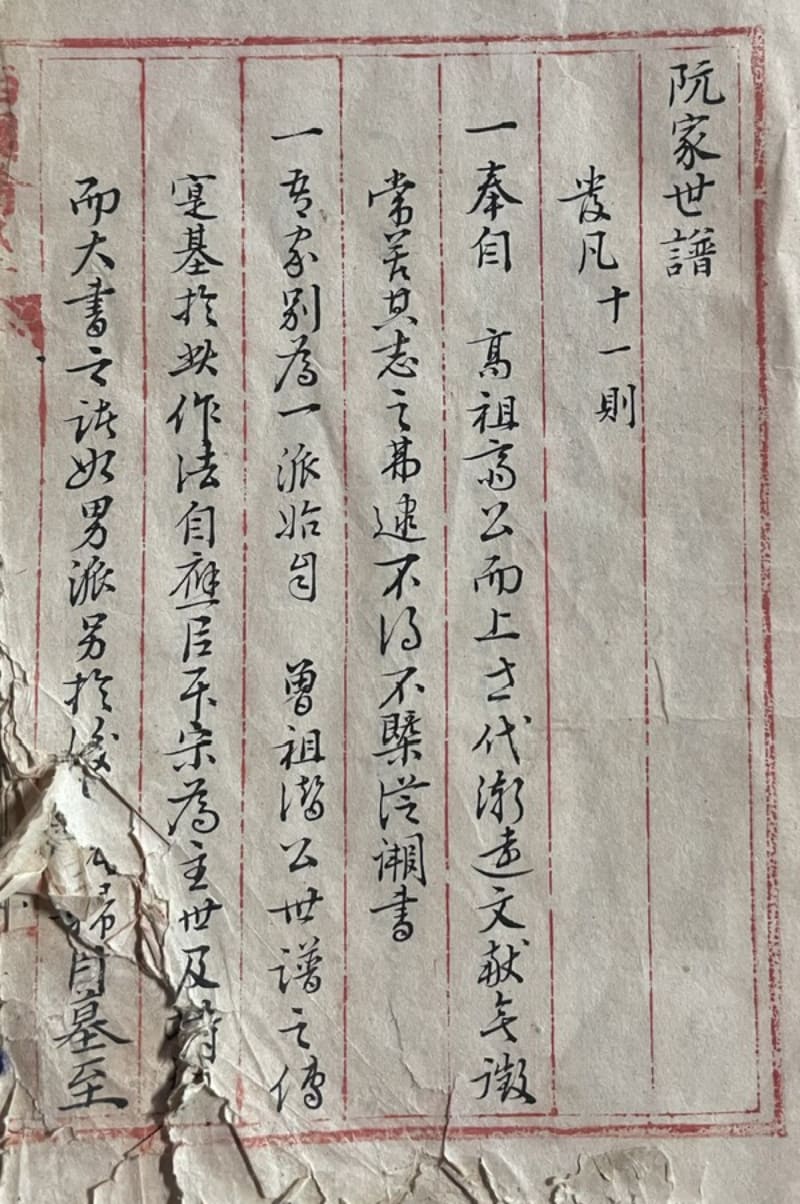 阮家世譜
發凡十一則
一奉自 高祖齋公而上世代漸遠文献無徵
常苦其志之弗逮不得不槩從闕書
一吾家別為一派始自 曾祖公世譜之傳
寔基於此作法自應臣平宗為主世及
而大書之諸如男派另於 婦自墓至